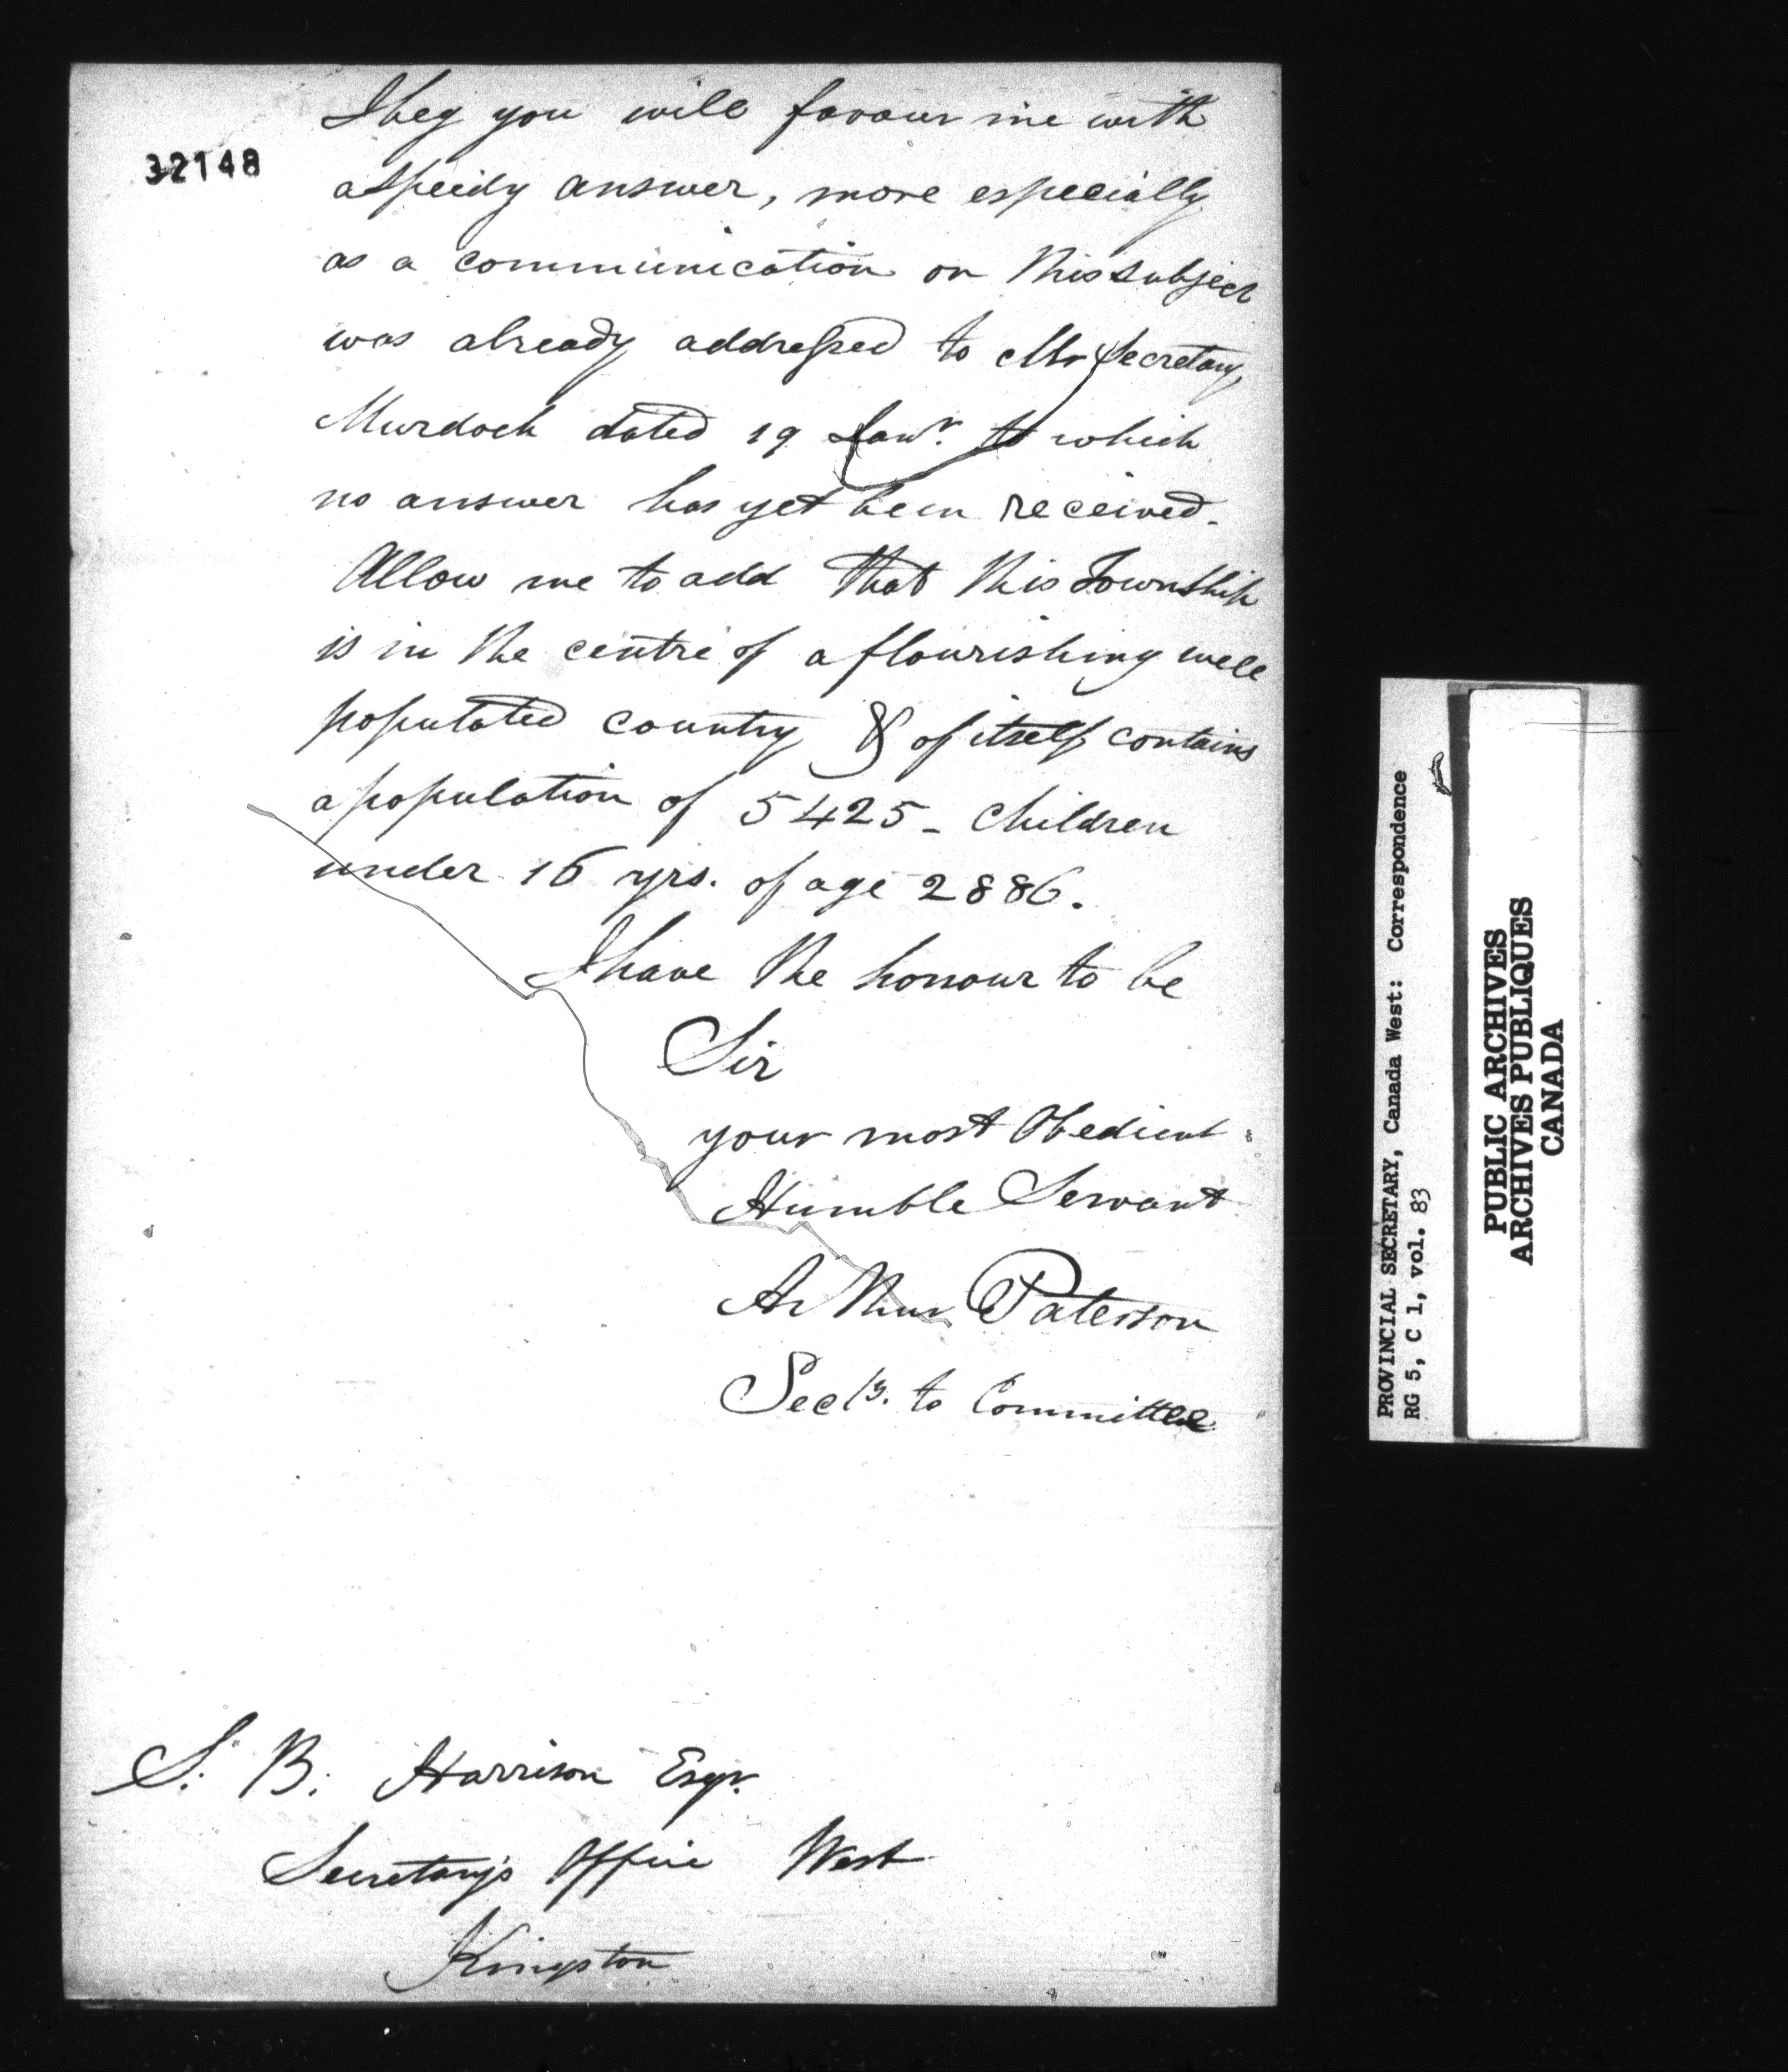 32148
I beg you will favour me with
a speedy answer, more especially
as a communication on this subject
was already addressed to Mr Secretary
Murdoch dated 19 Janr. to which
no answer has yet been received.
Allow me to add that this Township
is in the centre of a flourishing well
populated country & of itself contains
a population of 5425 - children
under 16 yrs. of age 2886.
I have the honour to be
Sir
your most Obedient
Humble Servant
Arthur Paterson
Secty. to Committee
S. B. Harrison Esqr.
Secretary's Office West
Kingston
PROVINCIAL SECRETARY, Canada West: Correspondence
RG 5, C 1, vol. 83
PUBLIC ARCHIVES
ARCHIVES PUBLIQUES
CANADA